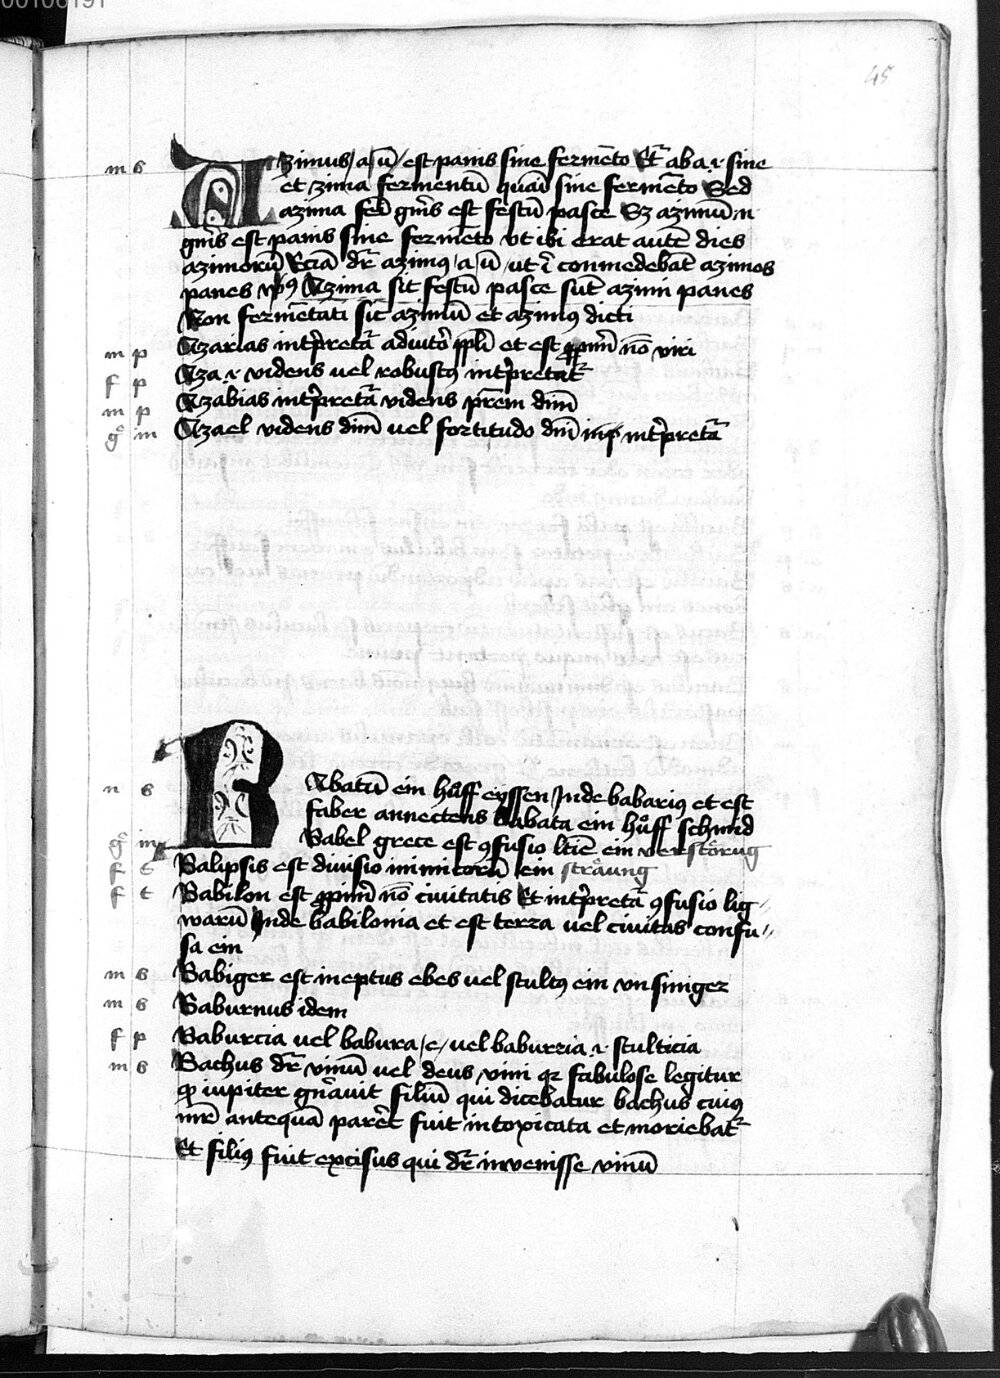 00106191
45
m s Azimus / a / ū / est panis sine fermēto Et̄ ab a .i. sine
et zima fermentū quasi sine fermēto Sed
azima femī gn̄is est festū pasce Sz azimū n
gn̄is est panis sine fermēto ut ibi erat autē dies
azimorū Eciā dr̄ azimꝰ / a / ū / ut ī conmedebāt azimos
panes vꝰ Azima sit festū pasce sūt azimi panes
Non fermētati sit azimū et azimꝰ dicti
m p Azarias int̄pretat̄ adiutor̄ ppl̄i et est ꝓpriū nō viri
f p Aza .i. videns uel robustꝰ int̄pretat̄
m p Azabias int̄pretat̄ videns pr̄em dīm
g̊ m Azael videns dīm uel fortitudo dīm int̄pretat̄
n s Babatū ein hůff eyssen Inde babariꝰ et est
faber annectens babata ein hůff schmid
g̊ m Babel grece est ꝯfusio ltīe ein verstörūg
f t Balipsis est diuisio inimicorū ein ströüung
f t Babilon est ꝓpriū nō ciuitatis Et int̄pretat̄ ꝯfusio lig-
warū Inde babilonia et est terra uel ciuitas confu-
sa ein
m s Babiger est ineptus ebes uel stultꝰ ein vnsiniger
m s Baburnus idem
f p Baburcia uel babura / e / uel baburria .i. stulticia
m s Bachus dr̄ vinū uel deus vini qꝛ fabulose legitur
ꝙ iupiter gn̄auit filiū qui dicebatur bachus cuiꝰ
mr̄ antequā parēt fuit intoxicata et moriebat̄
Et filiꝰ fuit excisus qui dr̄ invenisse vinū